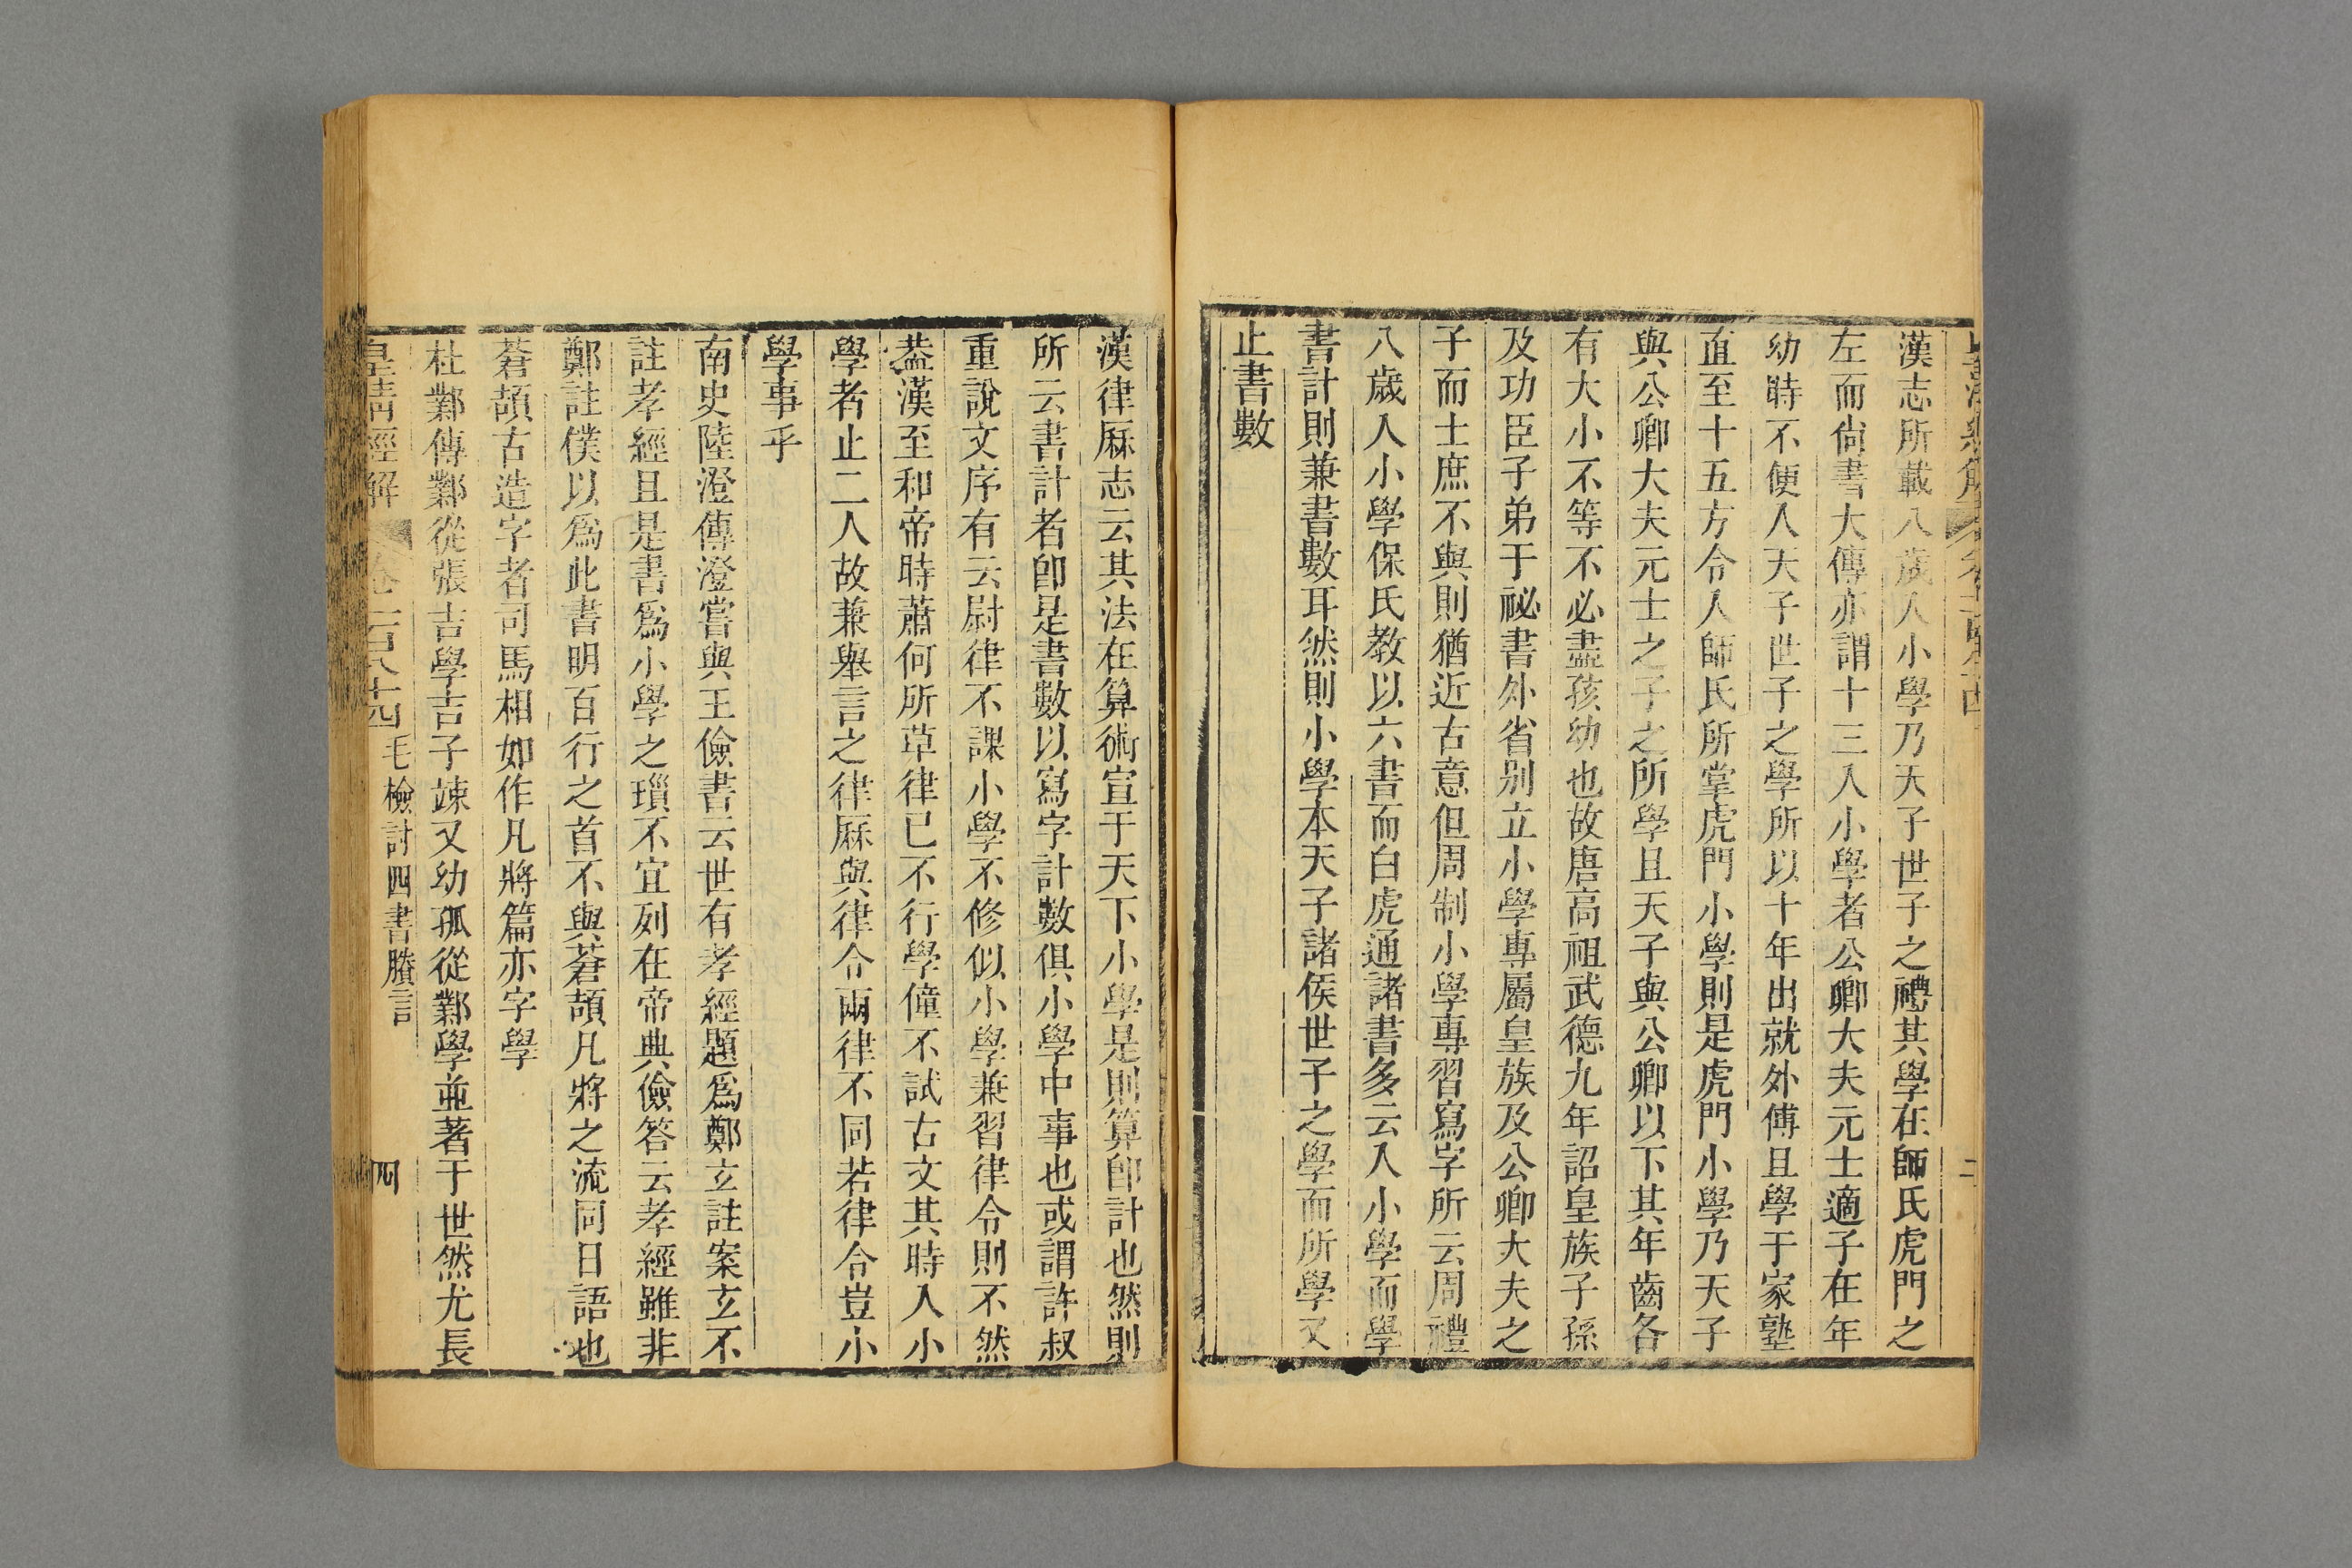 漢志所載八歲入小學乃天子世子之禮其學在師氏虎門之
左而尙書大傳亦謂十三入小學者公卿大夫元士適子在年
幼時不便入天子世子之學所以十年出就外傅且學于家塾
直至十五方令入師氏所掌虎門小學則是虎門小學乃天子
與公卿大夫元士之子之所學且天子與公卿以下其年齒各
有大小不等不必盡孩幼也故唐高祖武德九年詔皇族子孫
及功臣子弟于祕書外省别立小學專屬皇族及公卿大夫之
子而士庶不與則猶近古意但周制小學專習寫字所云周禮
八歲入小學保氏教以六書而白虎通諸書多云入小學而學
書計則兼書數耳然則小學本天子諸侯世子之學而所學又
止書數
漢律厤志云其法在算術宣于天下小學是則算卽計也然則
所云書計者卽是書數以寫字計數俱小學中事也或謂許叔
重說文序有云尉律不課小學不修似小學兼習律令則不然
葢漢至和帝時蕭何所草律已不行學僮不試古文其時入小
學者止二人故兼舉言之律厤與律令兩律不同若律令豈小
學事乎
南史陸澄傳澄嘗與王儉書云世有孝經題爲鄭立註案玄不
註孝經且是書爲小學之瑣不宜列在帝典儉答云孝經雖非
鄭註僕以爲此書明百行之首不與蒼頡凡將之流同日語也
蒼頡古造字者司馬相如作凡將篇亦字學
杜鄴傳鄴從張吉學吉子竦又幼孤從鄴學並著于世然尤長
皇淸經解 卷一百八十四 毛檢討四書賸言 四